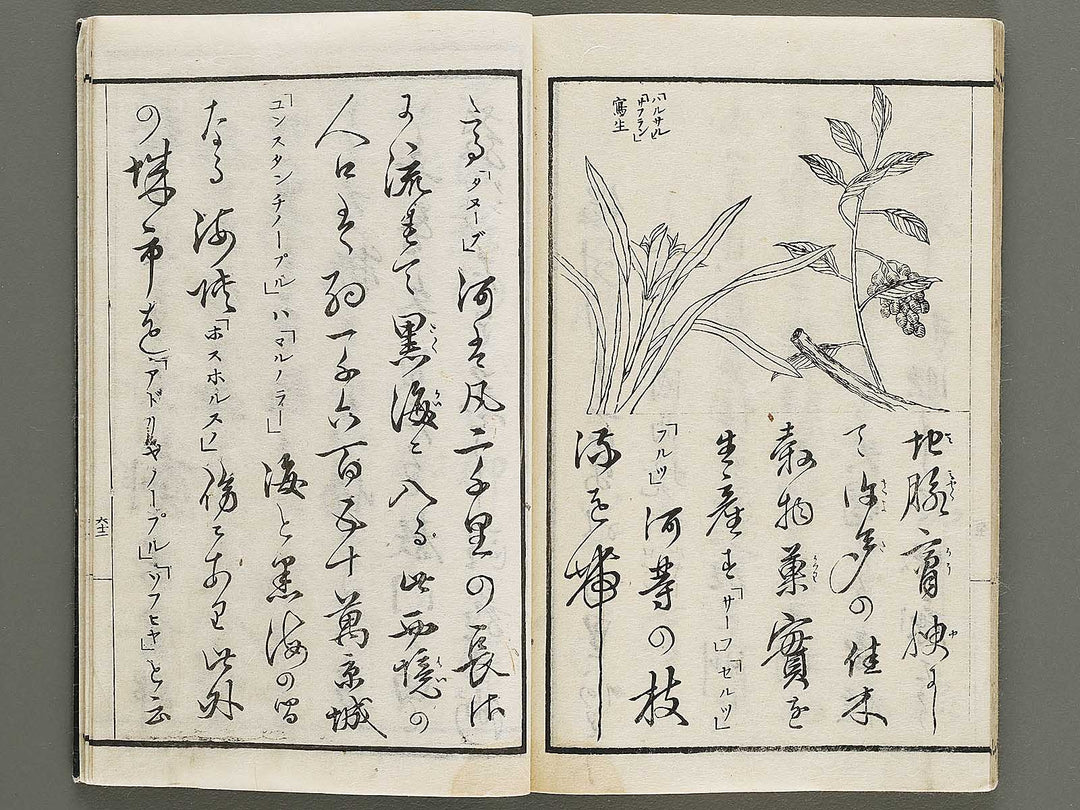 「ハルサム」
「サフラン」
寫生
地脉膏腴にし
て許多の佳木
穀物菓實を
生産す「サーロ」「セルツ」
「フルツ」河等の枝
流を帶
「タヌーブ」河は凡二千里の長
に流れて黒海に入る此西境の
人口は約一千六百五十萬京城
「コンスタンチノープル」ハ「マルノラー」海と黒海の間
なる海峡「ホスホルスノ」傍にあり此外
の 市を「アドリヤノープル」「ソフヒヤ」と云